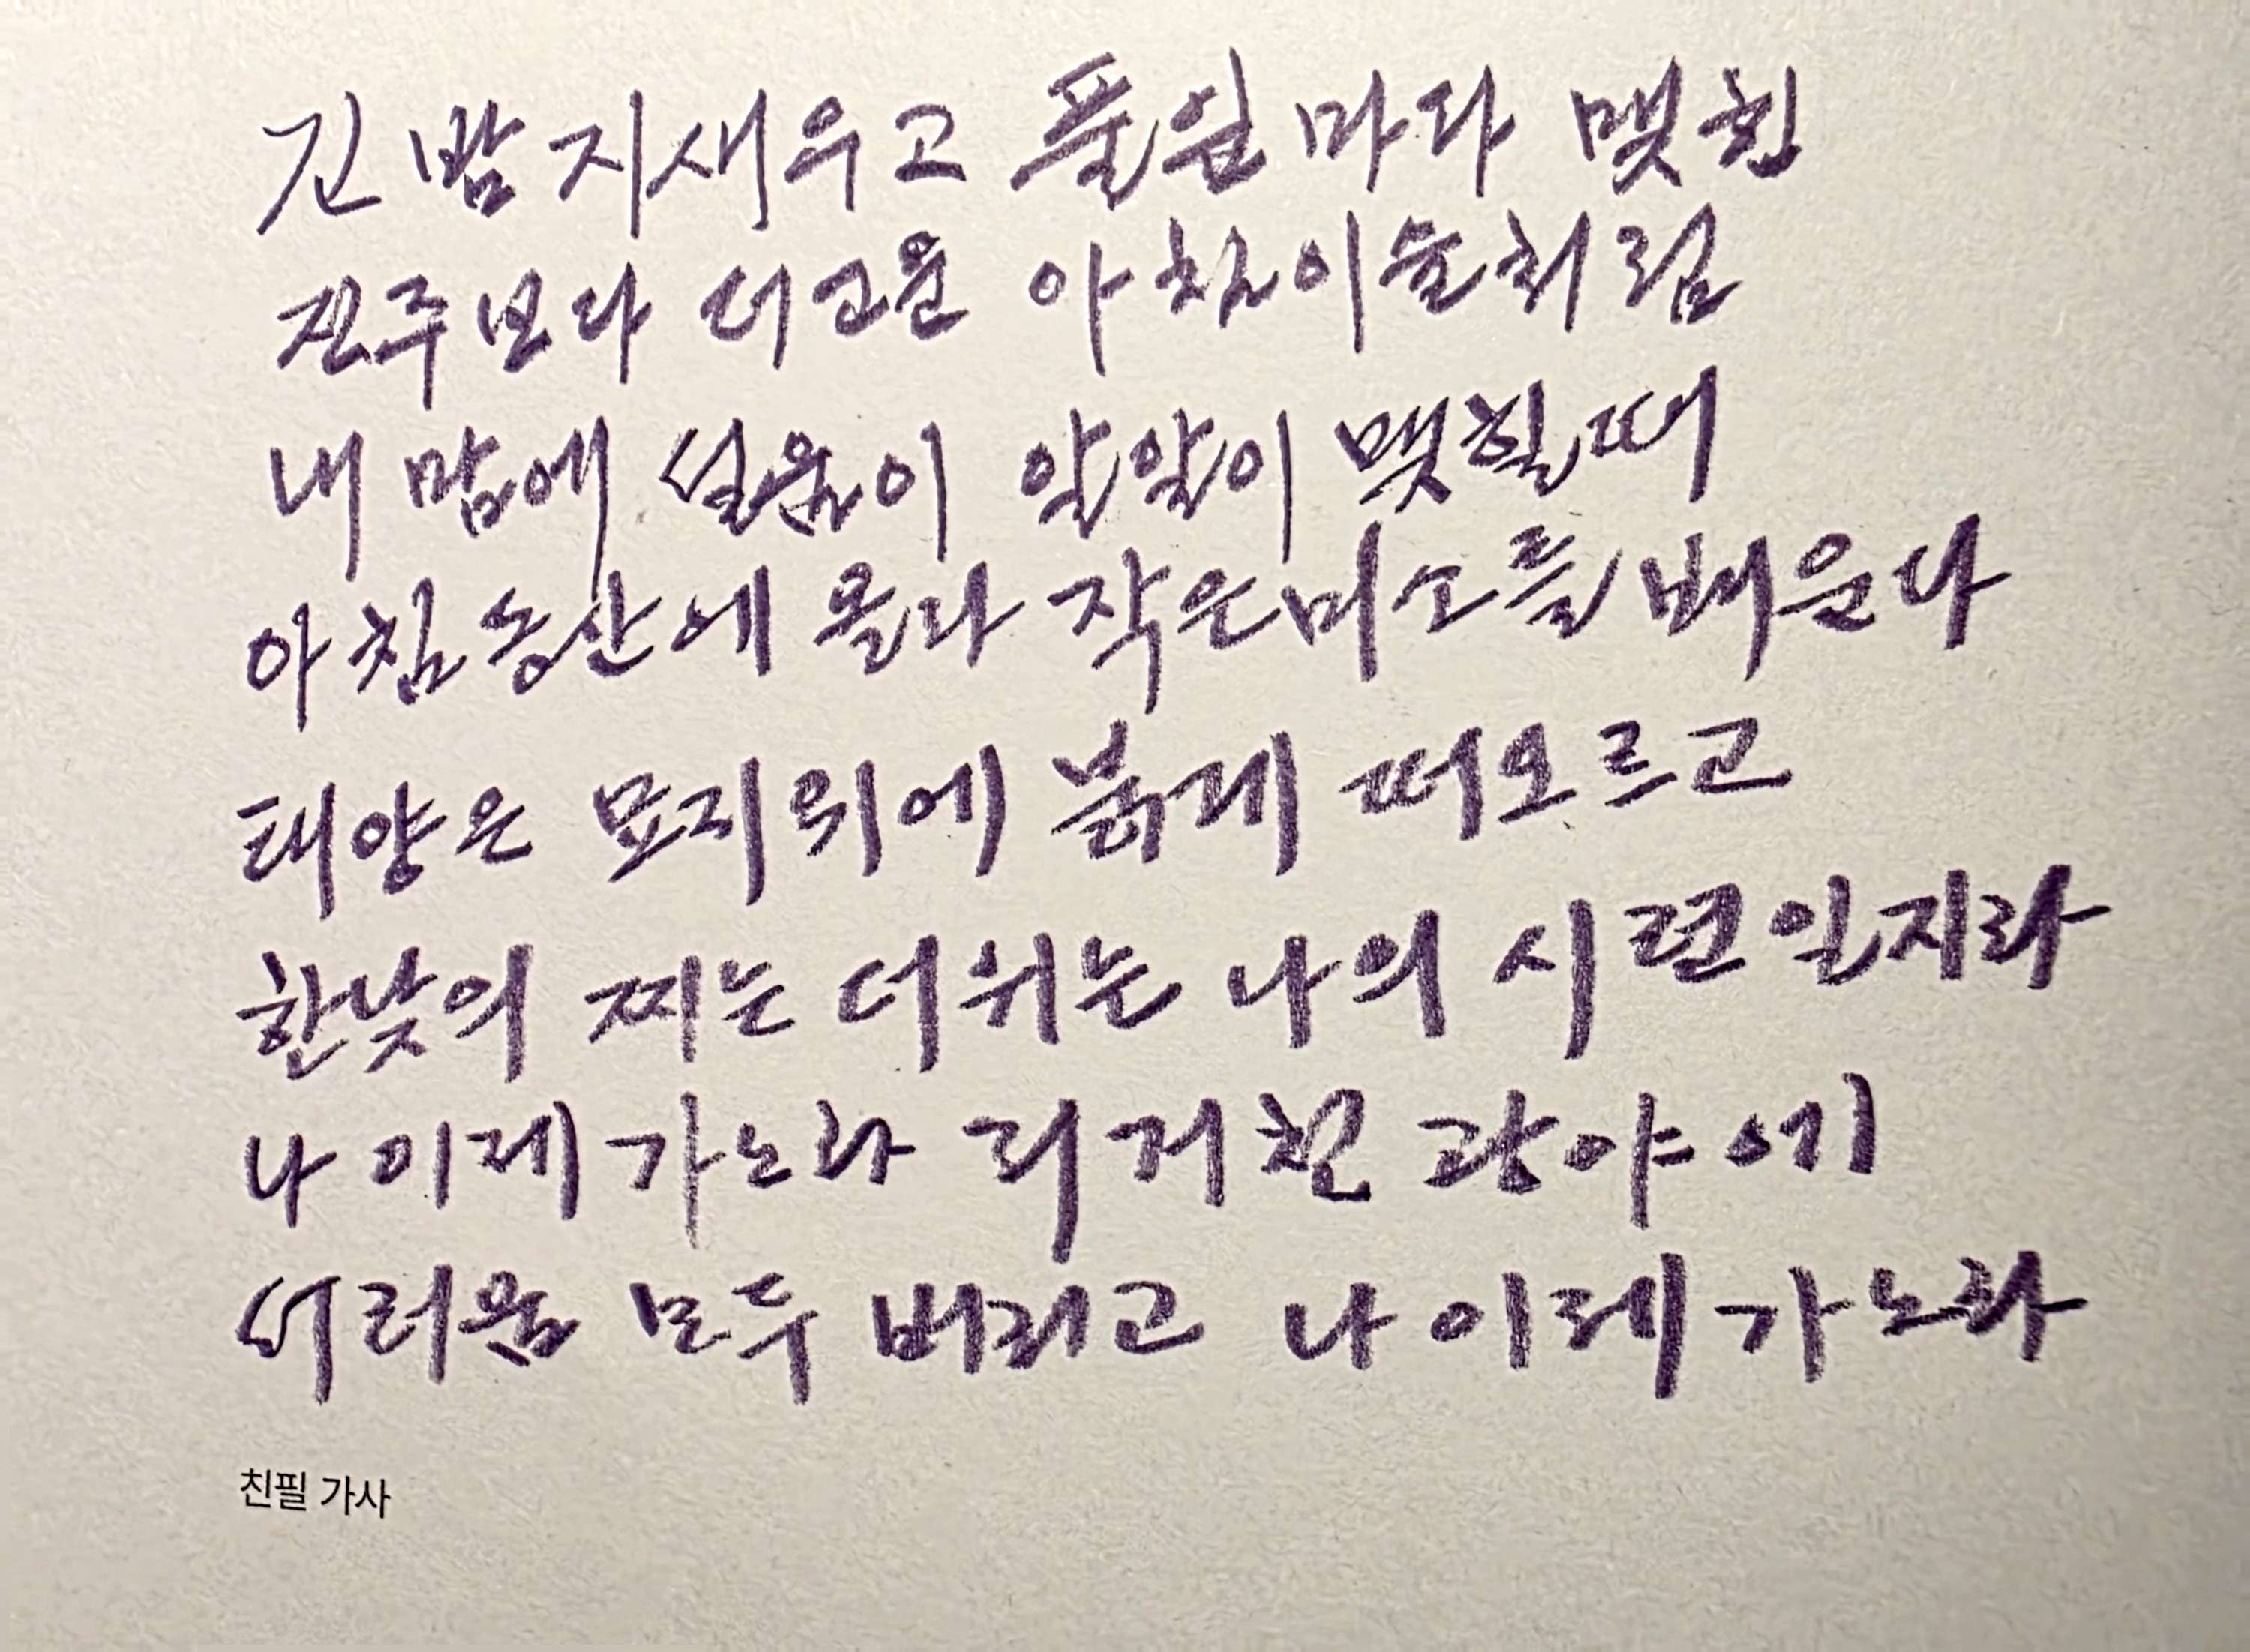 긴 밤 지새우고 풀잎마다 맺힌
진주보다 더 고운 아침이슬처럼
내 맘에 설움이 알알이 맺힐 때
아침동산에 올라 작은 미소를 배운다
태양은 묘지 위에 붉게 떠오르고
한낮의 찌는 더위는 나의 시련일지라
나 이제 가노라 저 거친 광야에
서러움 모두 버리고 나 이제 가노라
친필 가사